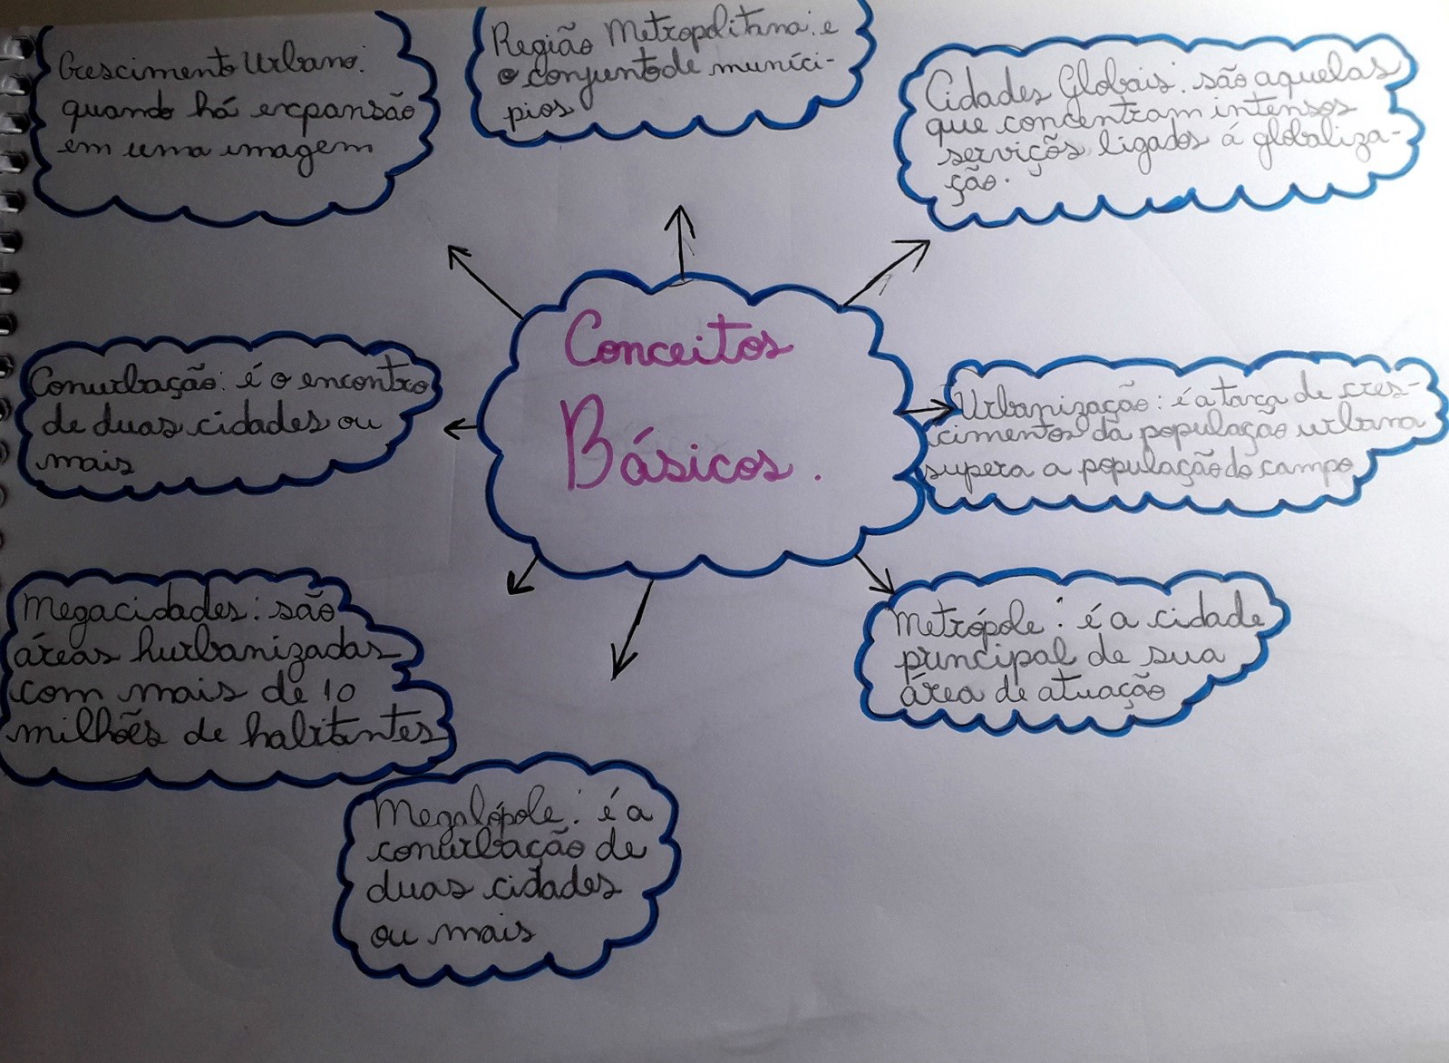 Crescimento Urbano:
quando há expansão
em uma imagem
Região Metropolitana: e
o conjunto de muníci-
pios
Cidades Globais: são aquelas
que concentram intensos
serviçõs ligados á globaliza-
ção.
Conceitos
Básicos.
Conurbação: é o encontro
de duas cidades ou
mais
Urbanização: é a taxa de cres-
cimentos da população urbana
supera a população do campo
Megacidades: são
áreas hurbanizadas
com mais de 10
milhões de habitantes
Metrópole: é a cidade
principal de sua
área de atuação
Megalópole: é a
conurbação de
duas cidades
ou mais